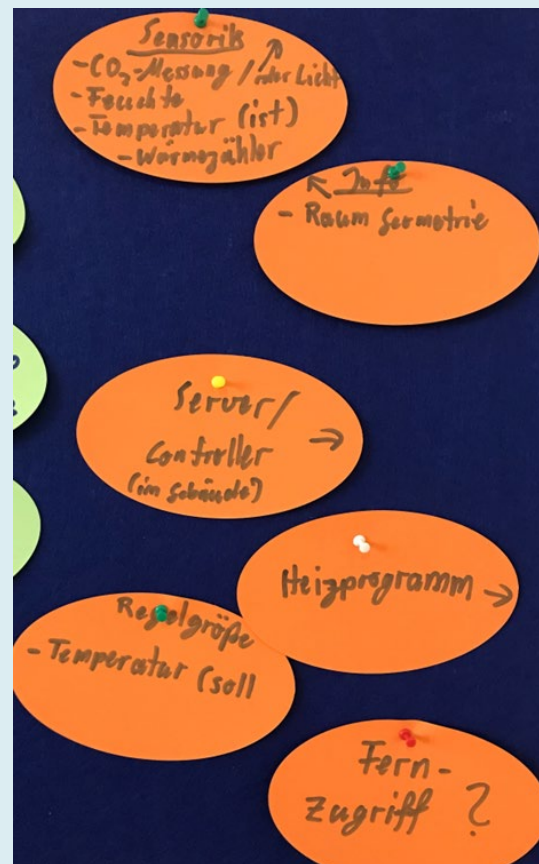 Sensorik ↗
- CO₂-Messung / oder Licht
- Feuchte
- Temperatur (ist)
- Wärmezähler
↖ Info
- Raum Geometrie
Server/
Controller →
(im Gebäude)
Heizprogramm →
Regelgröße
- Temperatur (soll
Fern-
Zugriff ?